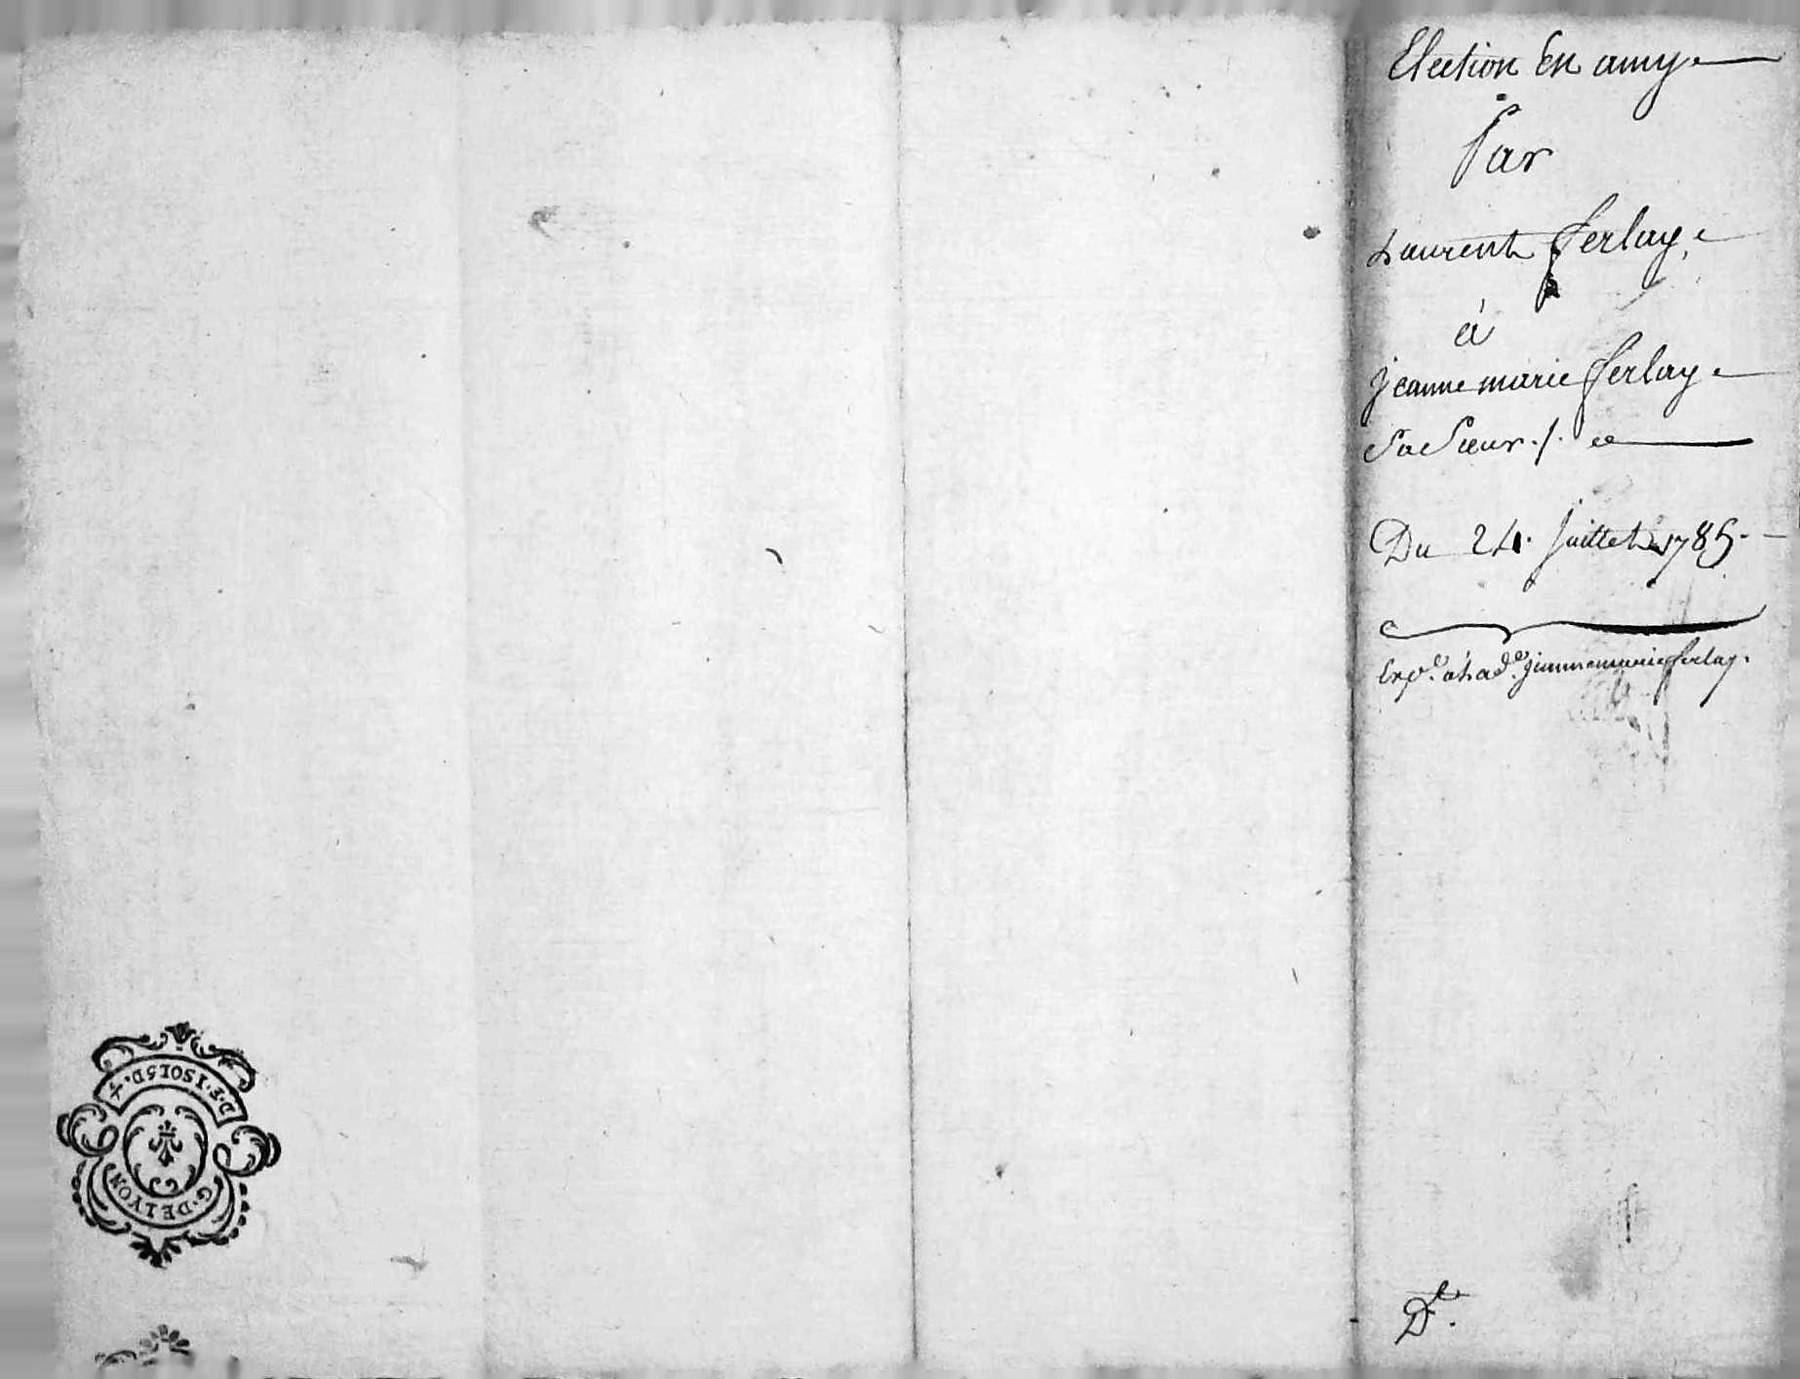 Election En amy.
Par
Laurent ferlay.
à
jeanne marie ferlay.
Sa Sœur./.
Du 24. juillet 1785.
Exp.e à lad.e jeanne marie ferlay.
D.e
G. DE LYON